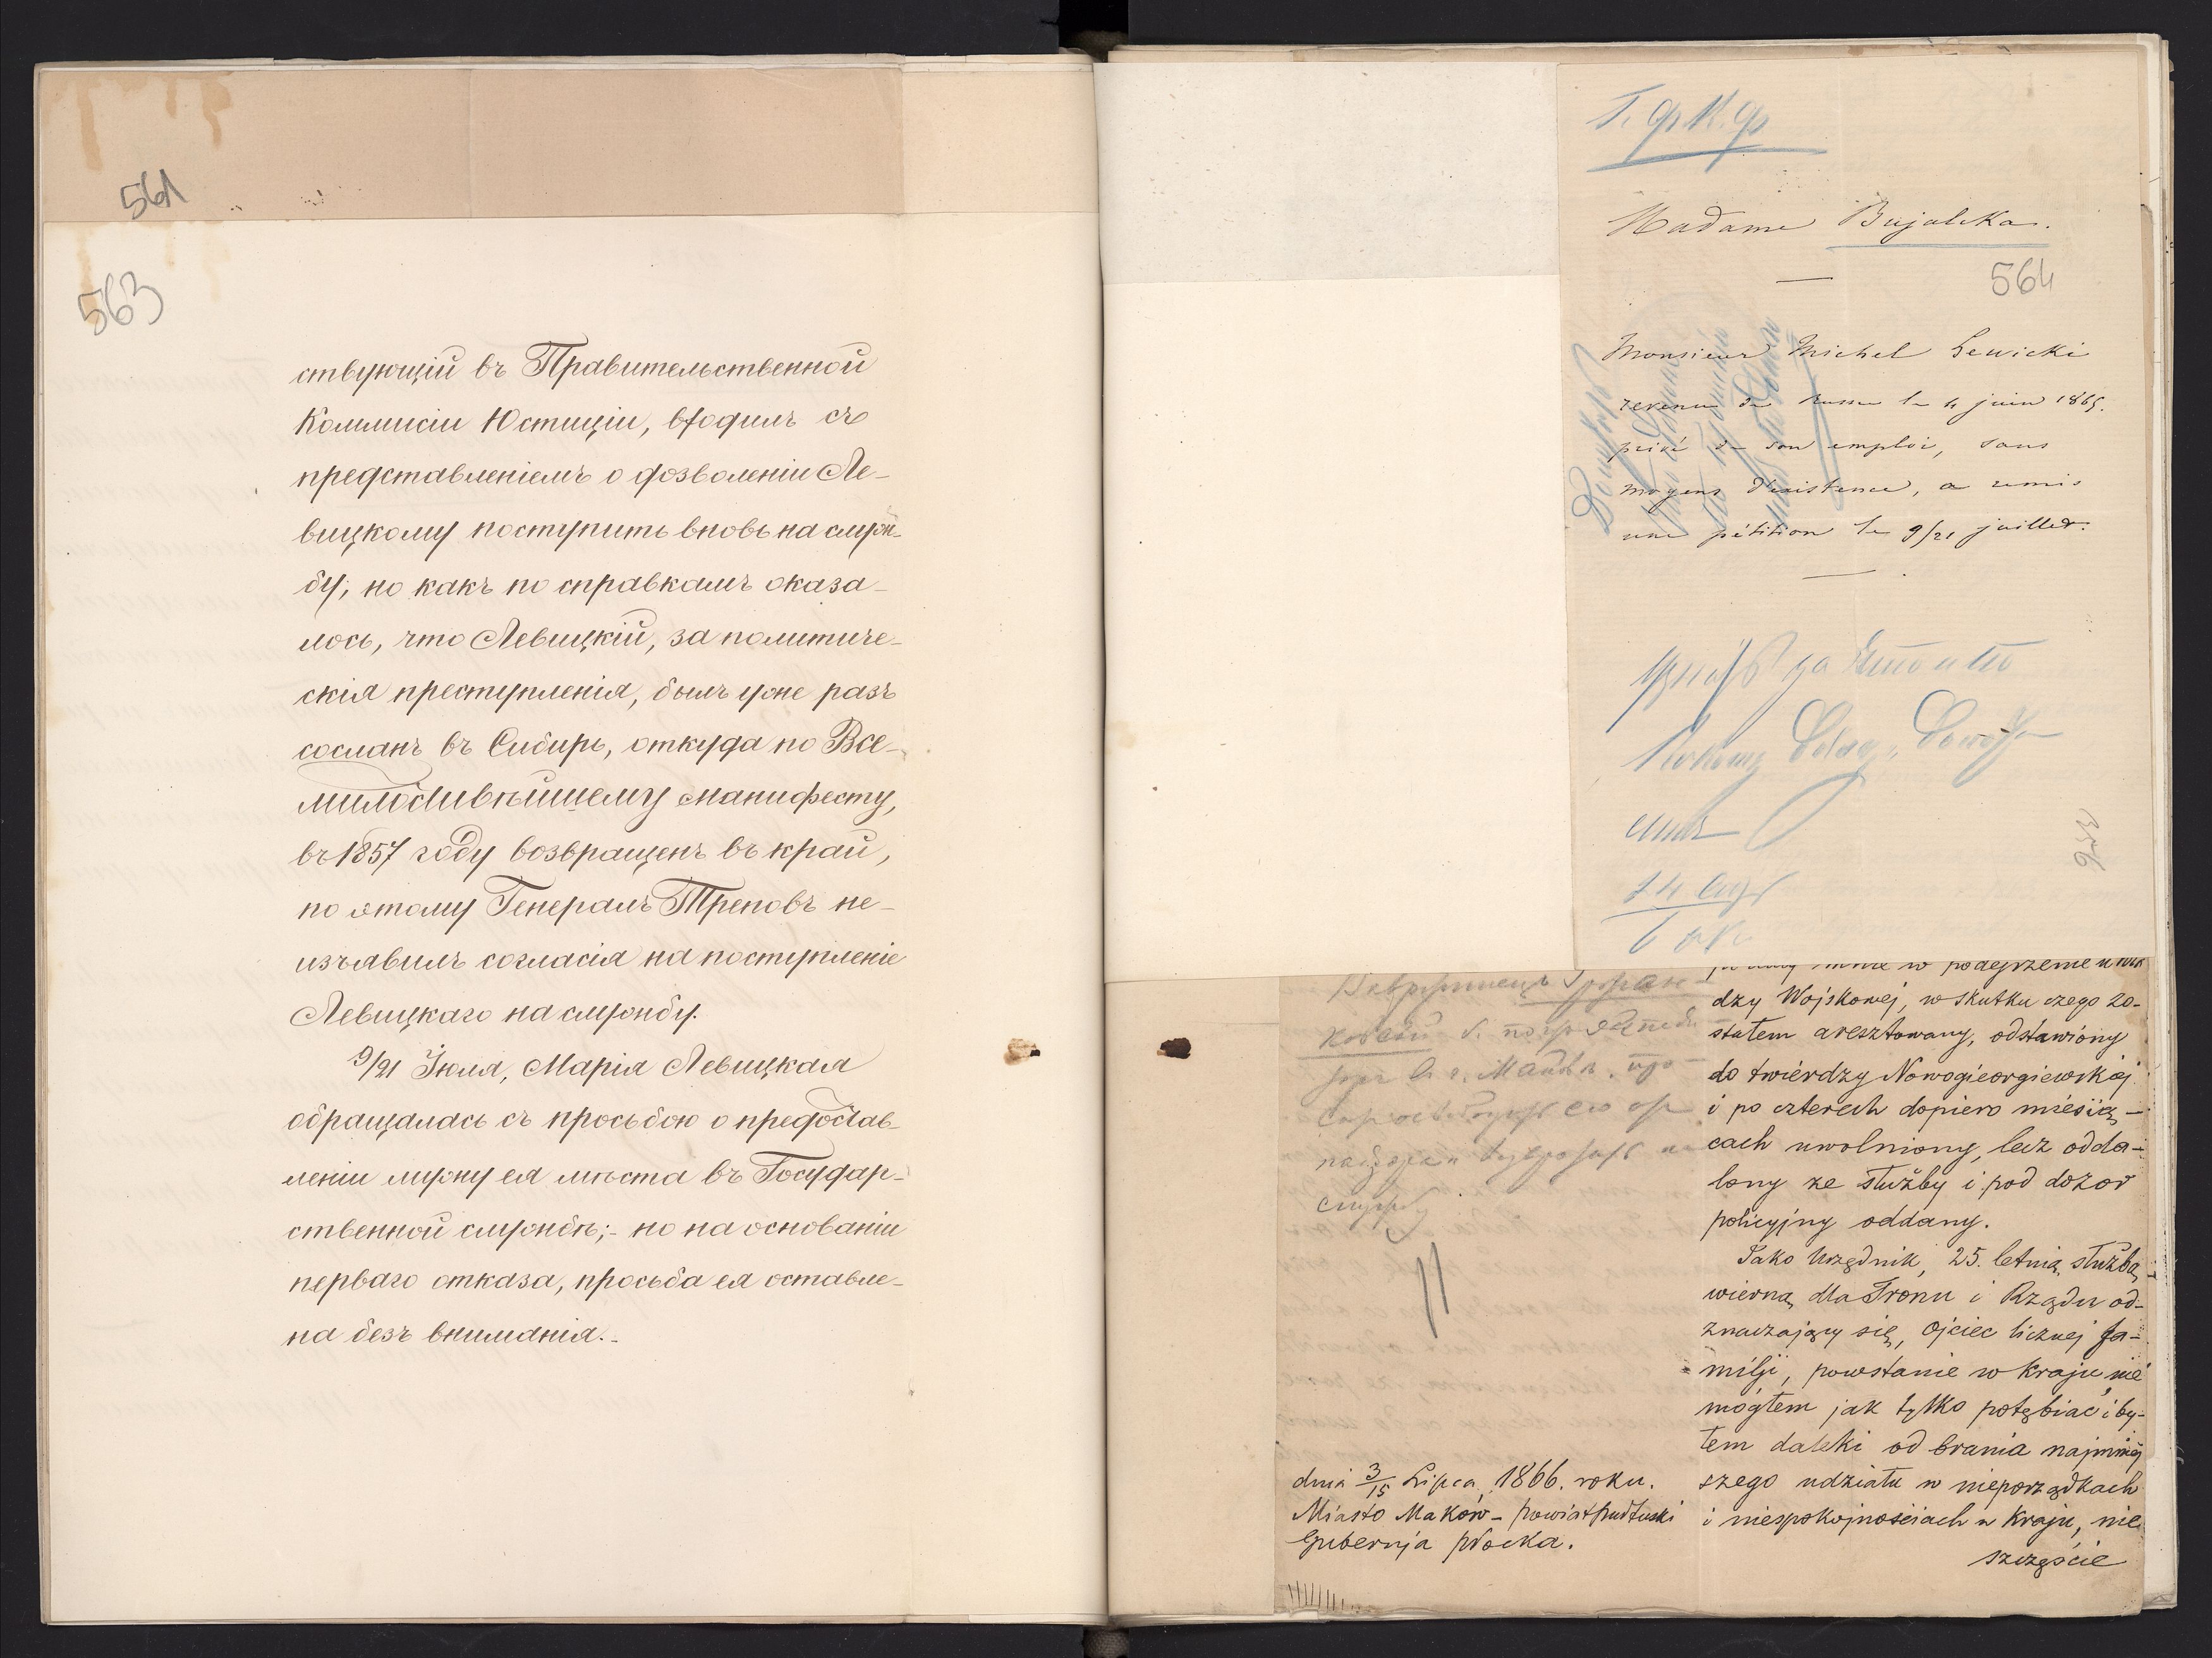 561
563
ствующій въ Правительственной
Коммисіи Юстиціи, входилъ съ
представленіемъ о дозволеніи Ле-
вицкому поступить вновь на служ-
бу; но какъ по справкамъ оказа-
лось, что Левицкій, за политиче-
скія преступленія, былъ уже разъ
сосланъ въ Сибирь, откуда по Все-
милостивѣйшему манифесту,
въ 1857 году возвращенъ въ край,
по этому Генералъ Треповъ не-
изъявилъ согласія на поступленіе
Левицкаго на службу.
9/21 Іюля, Марія Левицкая
обращалась съ просьбою о предостав-
леніи мужу ея мѣста въ Государ-
ственной службѣ;- но на основаніи
перваго отказа, просьба ея оставле-
на безъ вниманія.-
Madame Bujalska.
564
Monsieur Michel Lewicki
revenu de Russie le 4 juin 1865.
privé de son emploi, sans
moyens d'existence, a remis
une pétition le 9/21 juillet.
953
mnie w podejrzenie u Wła
dzy Wojskowej, w skutku czego zo-
stałem aresztowany, odstawióny
do twierdzy Nowogieorgiewskiej
i po czterech dopiero miesią-
cach uwolniony, lecz odda-
lony ze służby i pod dozor
policyjny oddany.
Jako Urzędnik, 25. letnią służbą,
wierną dla Tronu i Rządu od-
znaczający się, Ojciec licznej fa-
milji, powstanie w Kraju nie
mógłem jak tylko potębiać i by-
łem daleki od brania najmniej
szego udziału w nieporządkach
i niespokojnościach w Kraju, nie
szczęście
dnia 3/15 Lipca 1866. roku.
Miasto Maków - powiat pułtuski
Gubernja płocka.